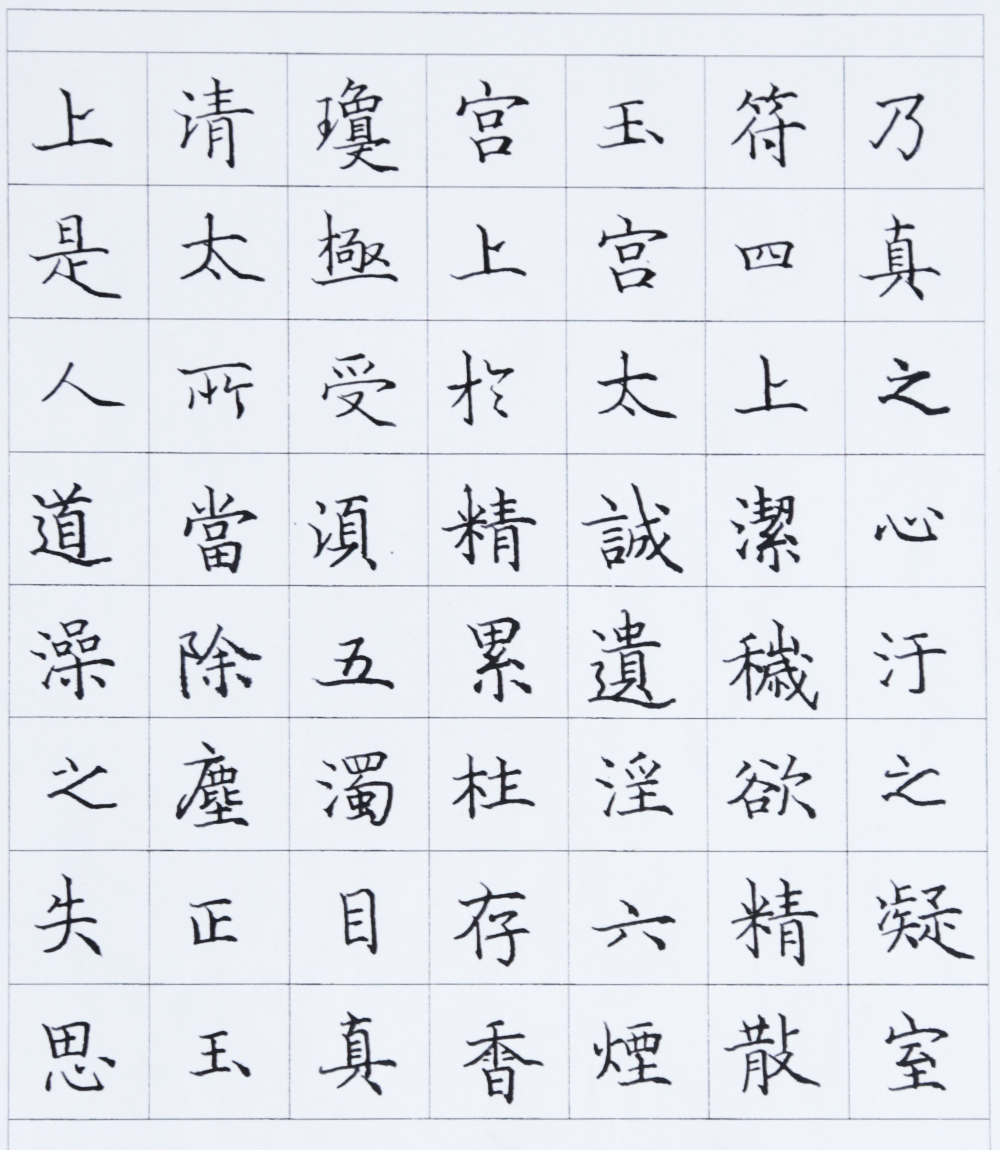 上清瓊宫玉符乃
是太極上宫四真
人所受於太上之
道當湏精誠潔心
澡除五累遺穢汙
之塵濁杜淫欲之
失正目存六精凝
思玉真香煙散室